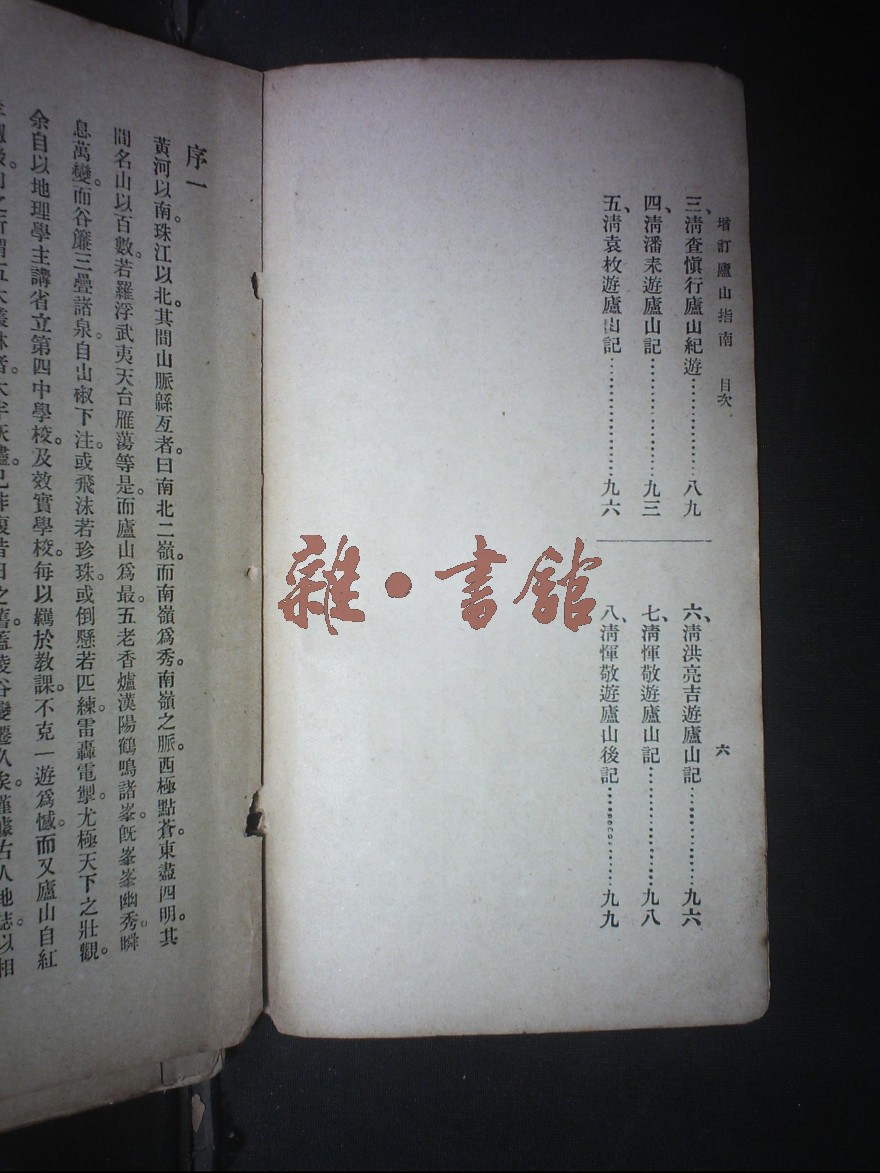 增訂廬山指南 目次 六
三、清查愼行廬山紀遊………………八九
四、清潘耒遊廬山記…………………九三
五、清袁枚遊廬山記…………………九六
六、清洪亮吉遊廬山記………………九六
七、清惲敬遊廬山記…………………九八
八、清惲敬遊廬山後記………………九九
雜·書館
序一
黃河以南。珠江以北。其間山脈緜亙者。曰南北二嶺。而南嶺爲秀。南嶺之脈。西極點蒼。東盡四明。其
間名山以百數。若羅浮武夷天台雁蕩等是。而廬山爲最。五老香爐漢陽鶴鳴諸峯。旣峯峯幽秀。瞬
息萬變。而谷簾三疊諸泉。自山椒下注。或飛沫若珍珠。或倒懸若匹練。雷轟電掣。尤極天下之壯觀。
余自以地理學主講省立第四中學校。及效實學校。每以羈於教課。不克一遊爲憾。而又廬山自紅
五大叢林者。大半灰燼。已非復昔日之舊。蓋陵谷變遷久矣。謹據古人地誌。以相